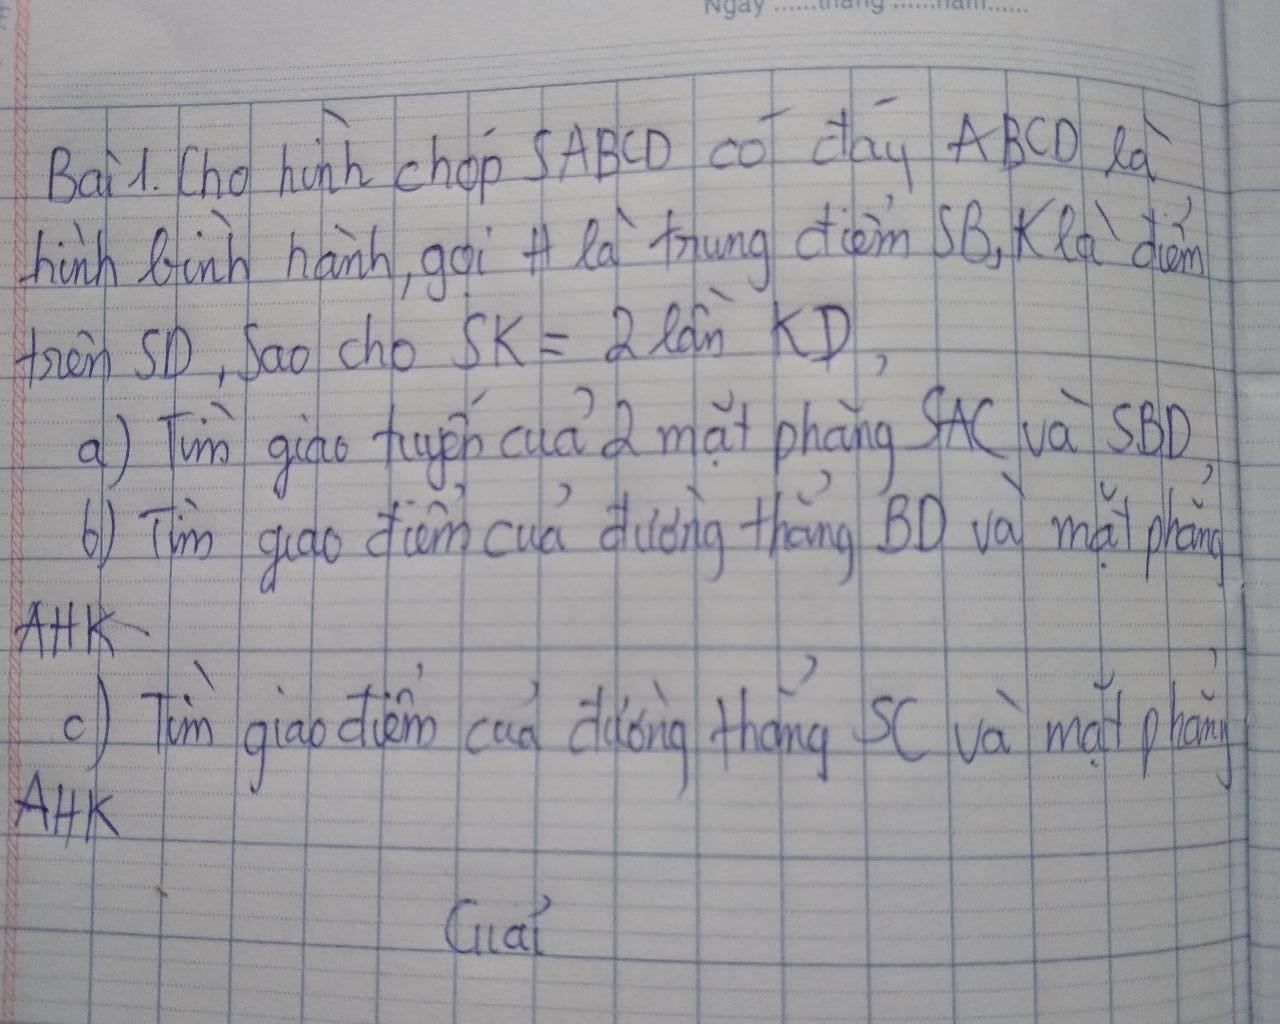 Ngày ......tháng ......năm......
Bài 1. Cho hình chóp SABCD có đáy ABCD là
hình bình hành, gọi H là trung điểm SB, K là điểm
trên SD, Sao cho SK = 2 lần KD,
a) Tìm giao tuyến của 2 mặt phẳng SAC và SBD,
b) Tìm giao điểm của đường thẳng BD và mặt phẳng
AHK
c) Tìm giao điểm của đường thẳng SC và mặt phẳng
AHK
Giải